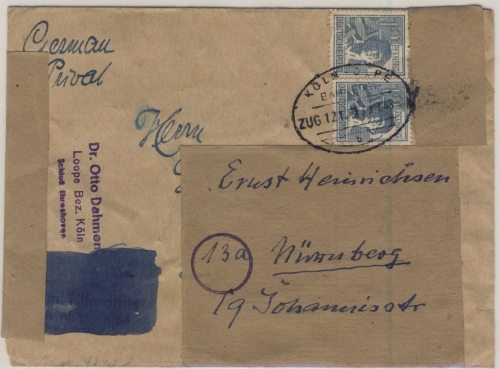 German
Privat
KÖLN-OLPE
BAHNPOST
ZUG 121
b
Herrn
Dr. Otto Dahmen
Loope Bez. Köln
Schloß Ehreshoven
Ernst Heinrichsen
13a
Nürnberg
Johannisstr